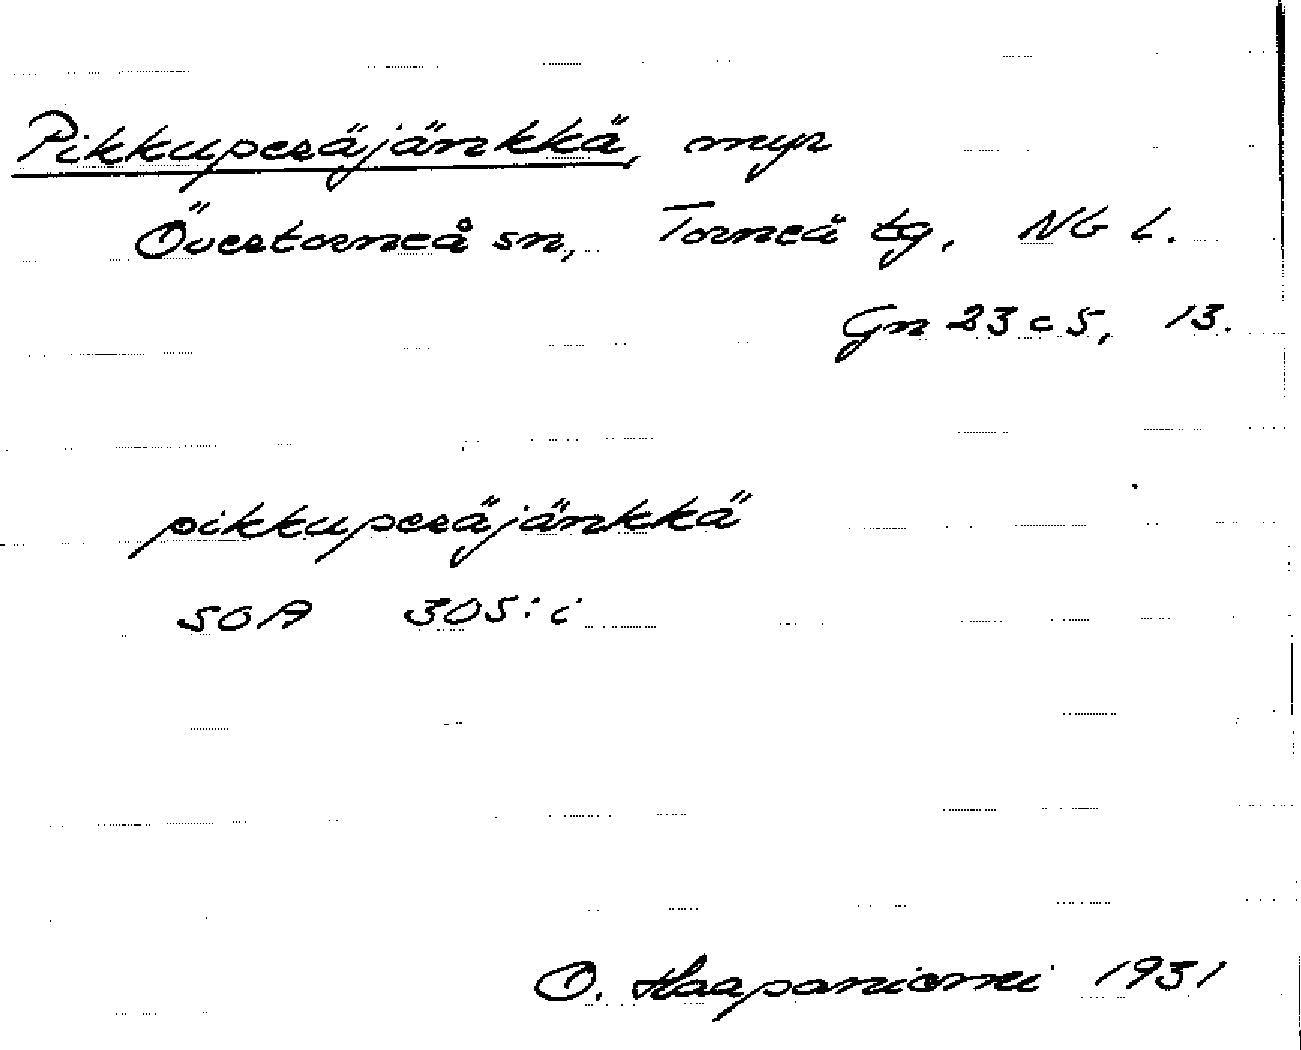 Pikkuperäjänkkä, myr
Övertorneå sn, Torneå tg, Nb l.
Gn 23 c 5, 13.
pikkuperäjänkkä
SOA 305:i
O. Haapaniemi 1931